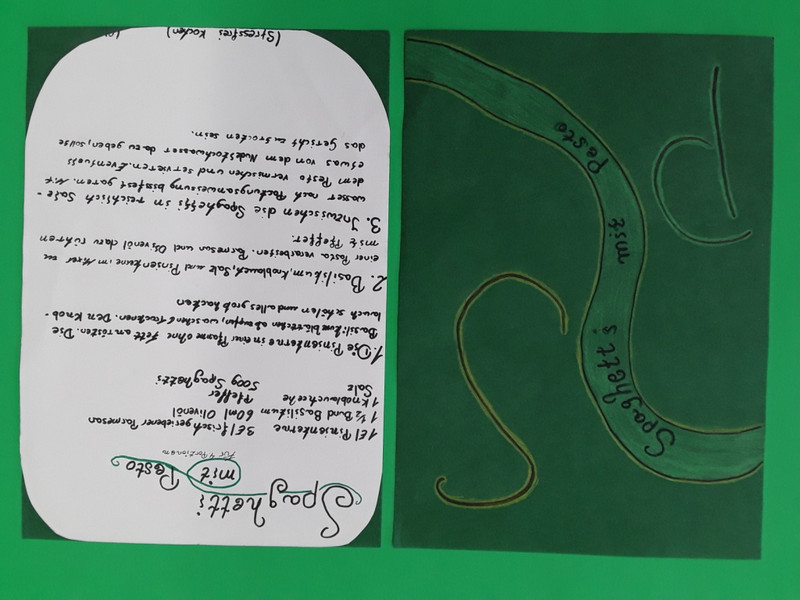 Spaghetti
mit Pesto
Für 4 Portionen
1 El Pinienkerne 3 El frisch geriebener Parmesan
1 ½ Bund Basilikum 60ml Olivenöl
1 Knoblauchzehe Pfeffer
Salz 500g Spaghetti
1. Die Pinienkerne in einer Pfanne ohne Fett an rösten. Die
Basilikumblättchen abzupfen, waschen & trocknen. Den Knob-
lauch schälen und alles grob hacken
2. Basilikum, Knoblauch, Salz und Pinienkerne im Mixer zu
einer Pasta verarbeiten. Parmesan und Olivenöl dazu rühren
mit Pfeffer.
3. Inzwischen die Spaghetti in reichlich Salz-
wasser nach Packungsanweisung bissfest garen. Mit
dem Pesto vermischen und servieren. Eventuell
etwas von dem Nudelkochwasser dazu geben, sollte
das Gericht zu trocken sein.
(Stressfrei kochen)
Spaghetti mit Pesto
S
P